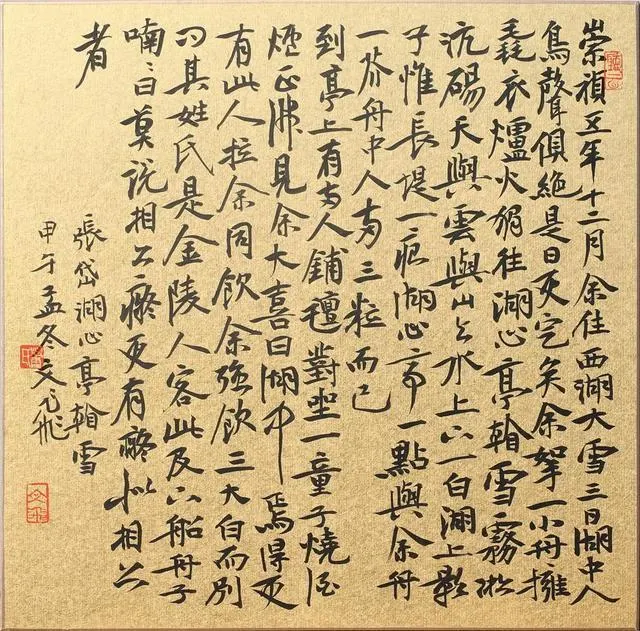 崇禎五年十二月余住西湖大雪三日湖中人
鳥聲俱絕是日更定矣余挐一小舟擁
毳衣爐火獨往湖心亭看雪霧淞
沆碭天與雲與山与水上下一白湖上影
子惟長堤一痕湖心亭一點與余舟
一芥舟中人兩三粒而已
到亭上有兩人鋪氈對坐一童子燒酒
爐正沸見余大喜曰湖中焉得更
有此人拉余同飲余強飲三大白而別
問其姓氏是金陵人客此及下船舟子
喃々曰莫說相公癡更有癡似相公
者
張岱湖心亭看雪
甲午孟冬文飛